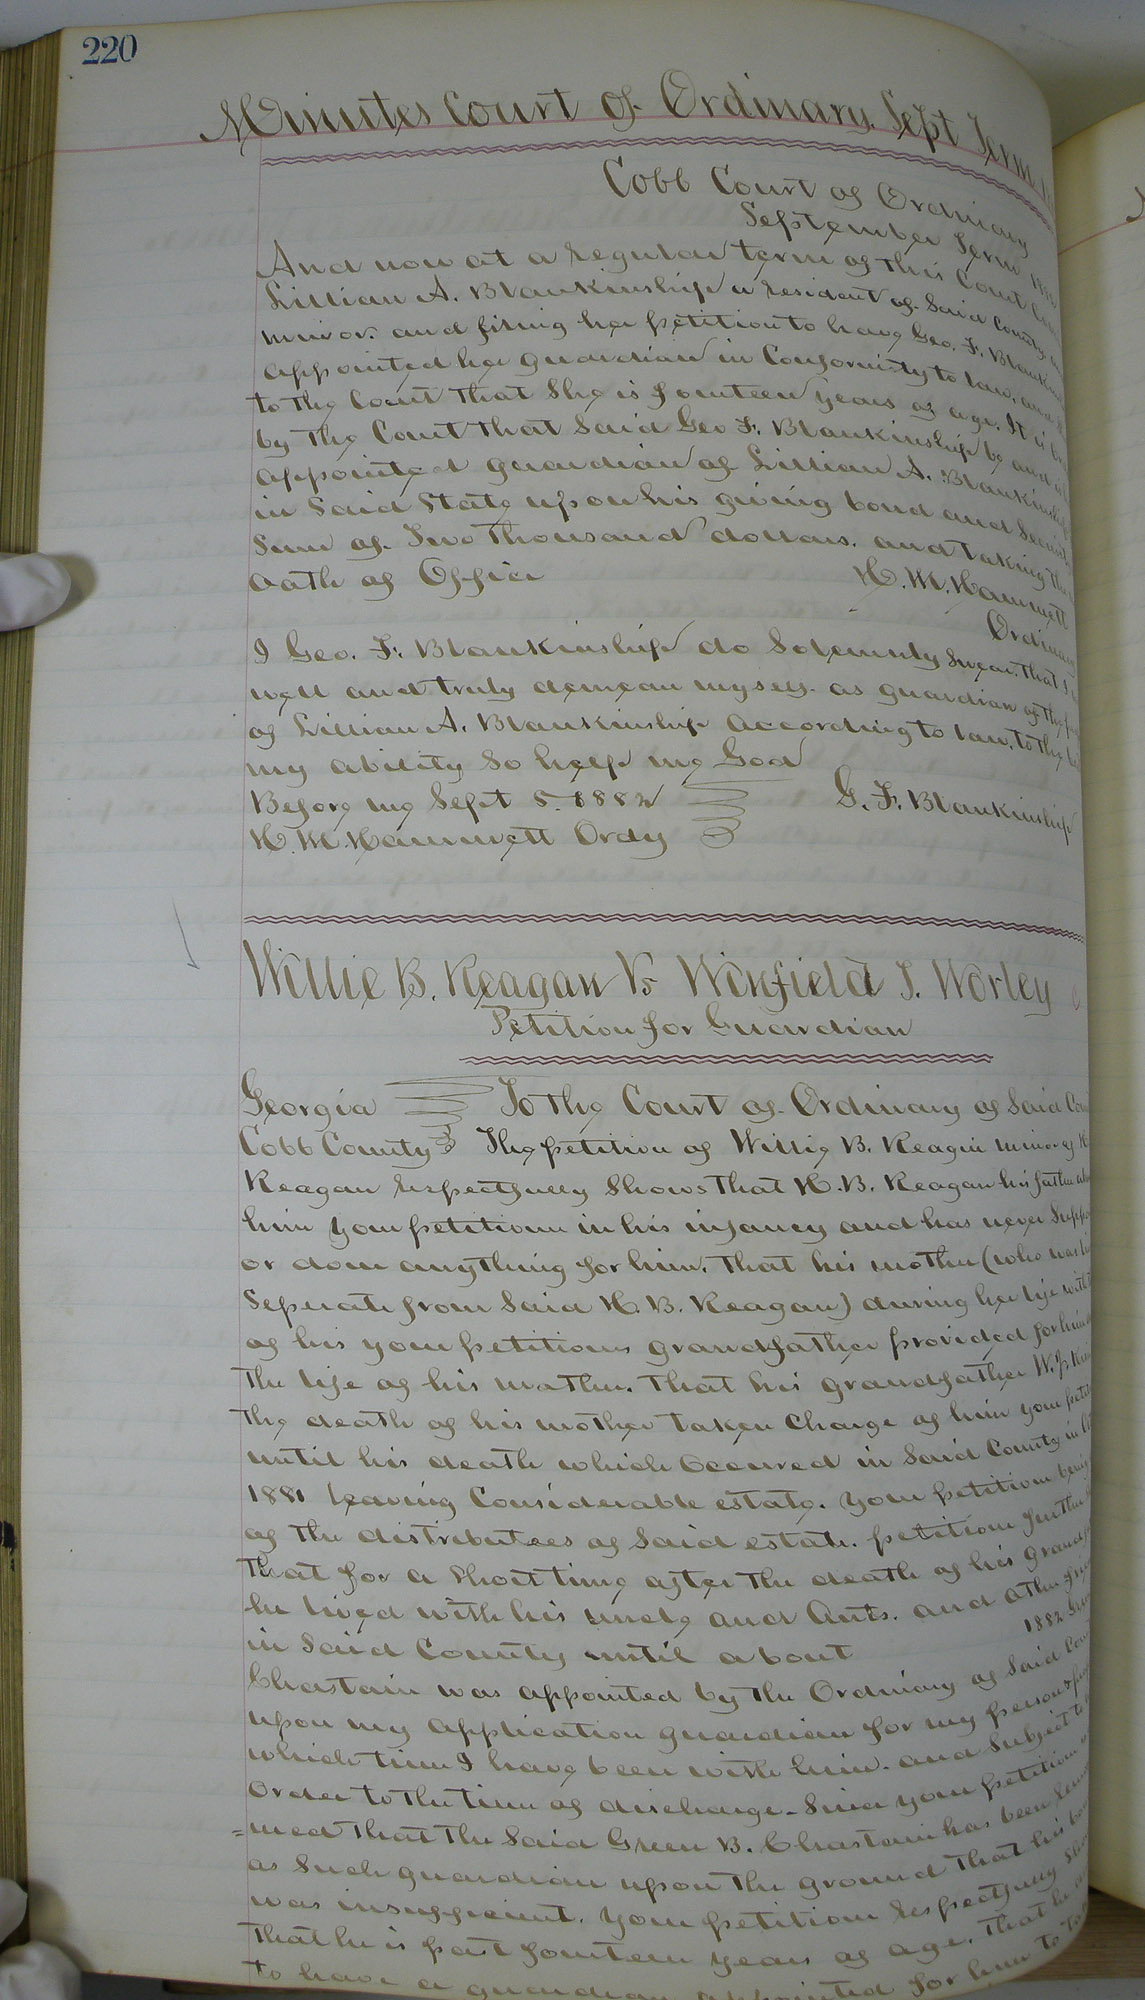 220
Minutes Court of Ordinary Sept Term
Cobb Court of Ordinary
September Term
And now at a regular term of this Court
Lillian A. Blankinship a resident of Said County
minor. and filing her petition to have Geo. F.
appointed her guardian in Conformity to law, and
to the Court that She is fourteen years of age. It is
by the Court that Said Geo F. Blankinship be and is
appointed guardian of Lillian A. Blankinship
in Said State upon his giving bond and
Sum of Two Thousand dollars. and taking the
Oath of Office H. M. Hammett
Ordinary
I Geo. F. Blankinship do Solemnly Swear. that I
well and truly demean myself as guardian of the
of Lillian A. Blankinship according to law, to the
my ability So help me God
Before me Sept 5. 1882 G. F. Blankinship
H. M. Hammett Ordy
Willie B. Reagan Vs Winfield J. Worley
Petition for Guardian
Georgia To the Court of Ordinary of Said
Cobb County The petition of Willie B. Reagin minor of
Reagan respectfully Shows That H. B. Reagan his father
him your petitioner in his infancy and has never
or done anything for him. That his mother (who was
Seperate from Said H. B. Reagan) during her life with
of his your petitioners grandfather provided for him
the life of his mother. That his grandfather W. P.
the death of his mother taken Charge of him your
until his death which Occurred in Said County in
1881 leaving Considerable estate. your petitioner being
of the distributees of Said estate. petitioner further
That for a Short time after the death of his
he lived with his uncle and Ants. and other
in Said County until about 1882
Chastain was appointed by the Ordinary of Said
upon my application guardian for my person &
which time I have been with him. and Subject to
Order to the time of discharge. Since your petitioner
=med That the Said Green B. Chastain has been
as Such guardian upon the ground That his
was insufficient. your petitioner respectfully
That he is past fourteen years of age. That he
to have a guardian appointed for him to